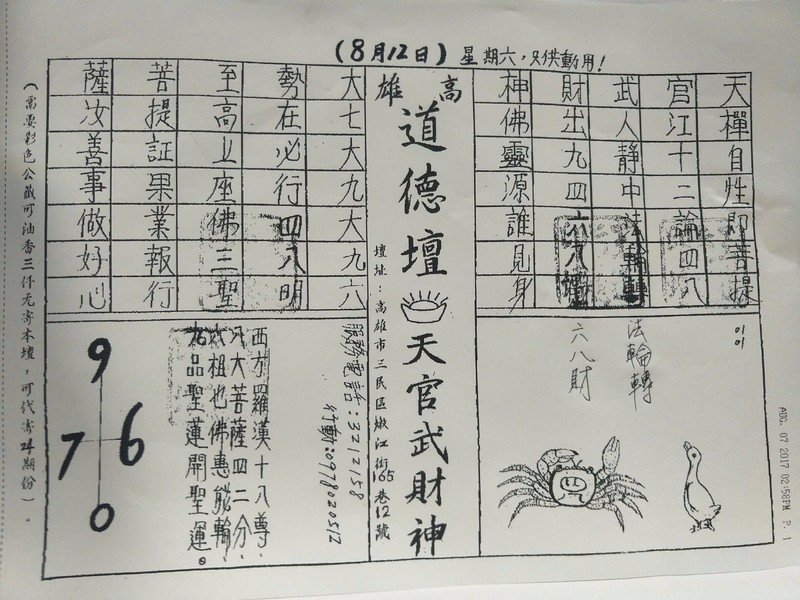 (8月12日) 星期六，只供動用!
天禪自性即菩提
官江十二論四八
武人靜中法輪轉
財出九四六八
神佛靈源誰見身
01
01
法輪轉
六八財
高雄
道德壇
天官武財神
壇址：高雄市三民區嫩江街165巷12號
大七大九大九六
勢在必行四八明
至高上座佛三聖
菩提証果業報行
薩汝善事做好心
服務電話：3212158
行動：0978020512
西方羅漢十八尊、
八大菩薩四二分、
六祖也佛惠能輪、
九品聖蓮開聖運。
9
7 6
0
（需要彩色公籤可油香三仟元寄本壇，可代寄24期份）。
AUG. 07 2017 02:58PM P. 1